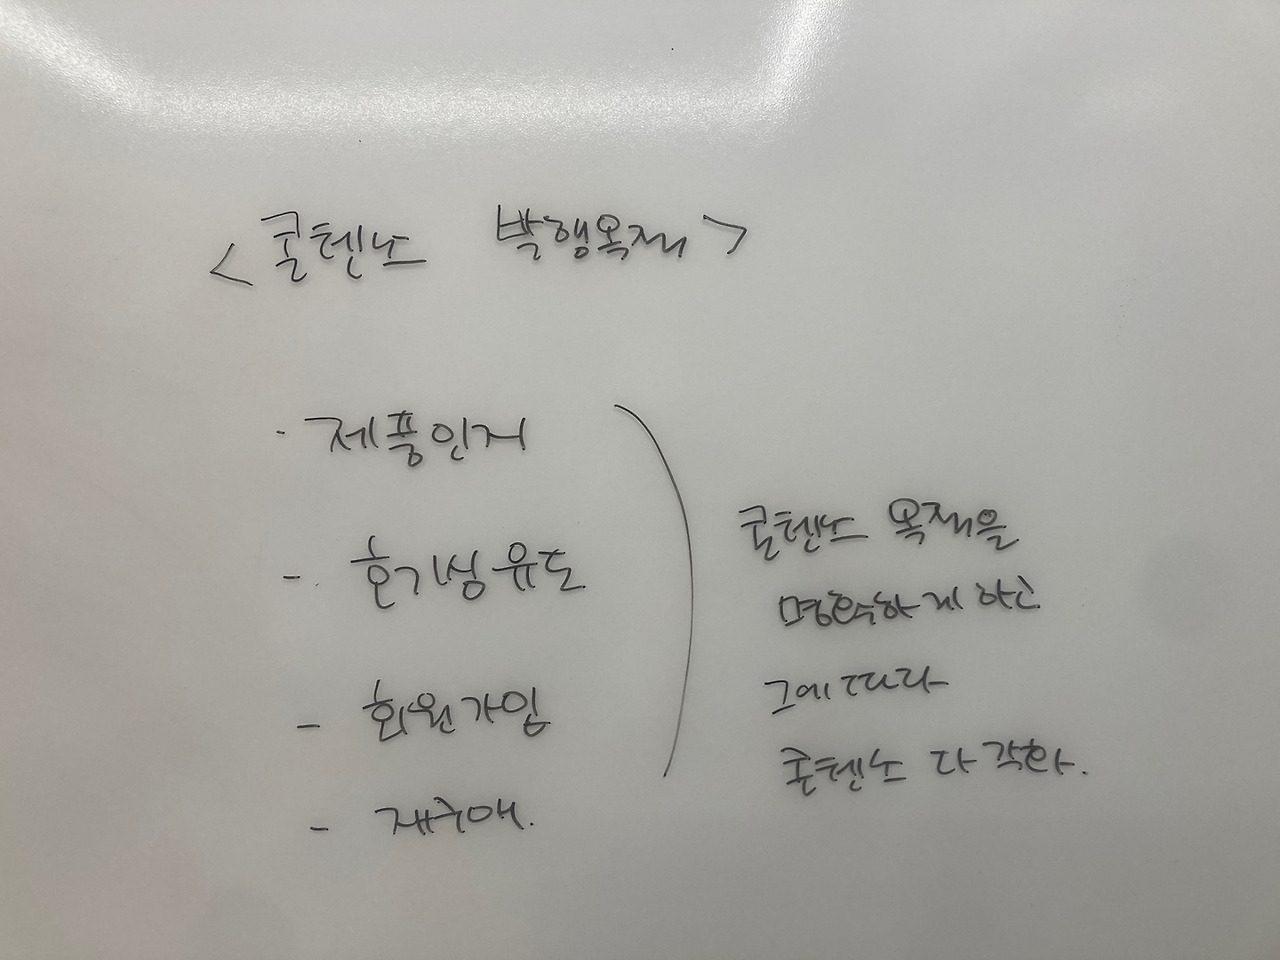 <콘텐츠 발행목적>
· 제품인지
- 호기심유도
- 회원가입
- 재구매.
콘텐츠 목적을
명확하게 하고
그에 따라
콘텐츠 다각화.